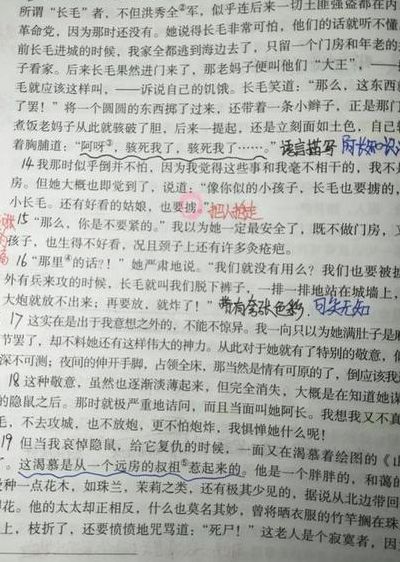 所谓“长毛”者，不但洪秀全②军，似乎连后来一切土匪强盗都在内
革命党，因为那时还没有。她说得长毛非常可怕，他们的话就听不懂
前长毛进城的时候，我家全都逃到海边去了，只留一个门房和年老的
子看家。后来长毛果然进门来了，那老妈子便叫他们“大王”，——
毛就应该这样叫，——诉说自己的饥饿。长毛笑道：“那么，这东西
了罢！”将一个圆圆的东西掷了过来，还带着一条小辫子，正是那门
煮饭老妈子从此就骇破了胆，后来一提起，还是立刻面如土色，自己
着胸脯道：“阿呀③，骇死我了，骇死我了……。” 语言描写
14 我那时似乎倒并不怕，因为我觉得这些事和我毫不相干的，我不
房。但她大概也即觉到了，说道：“像你似的小孩子，长毛也要掳的，
小长毛。还有好看的姑娘，也要掳。 把人抢走
15 “那么，你是不要紧的。”我以为她一定最安全了，既不做门房，又
孩子，也生得不好看，况且颈子上还有许多灸疮疤。
16 “那里④的话?！”她严肃地说。“我们就没有用么？我们也要被
外有兵来攻的时候，长毛就叫我们脱下裤子，一排一排地站在城墙上，
大炮就放不出来；再要放，就炸了！” 可笑无知
17 这实在是出于我意想之外的，不能不惊异。我一向只以为她满肚子是麻
节罢了，却不料她还有这样伟大的神力。从此对于她就有了特别的敬意，似
深不可测；夜间的伸开手脚，占领全床，那当然是情有可原的了，倒应该我
18 这种敬意，虽然也逐渐淡薄起来，但完全消失，大概是在知道她谋
的隐鼠之后。那时就极严重地诘问，而且当面叫她阿长。我想我又不真
毛，不去攻城，也不放炮，更不怕炮炸，我惧惮她什么呢！
19 但当我哀悼隐鼠，给它复仇的时候，一面又在渴慕着绘图的《山
。这渴慕是从一个远房的叔祖⑤惹起来的。他是一个胖胖的，和蔼的
种一点花木，如珠兰，茉莉之类，还有极其少见的，据说从北边带回
花。他的太太却正相反，什么也莫名其妙，曾将晒衣服的竹竿搁在珠
上，枝折了，还要愤愤地咒骂道：“死尸！”这老人是个寂寞者，因